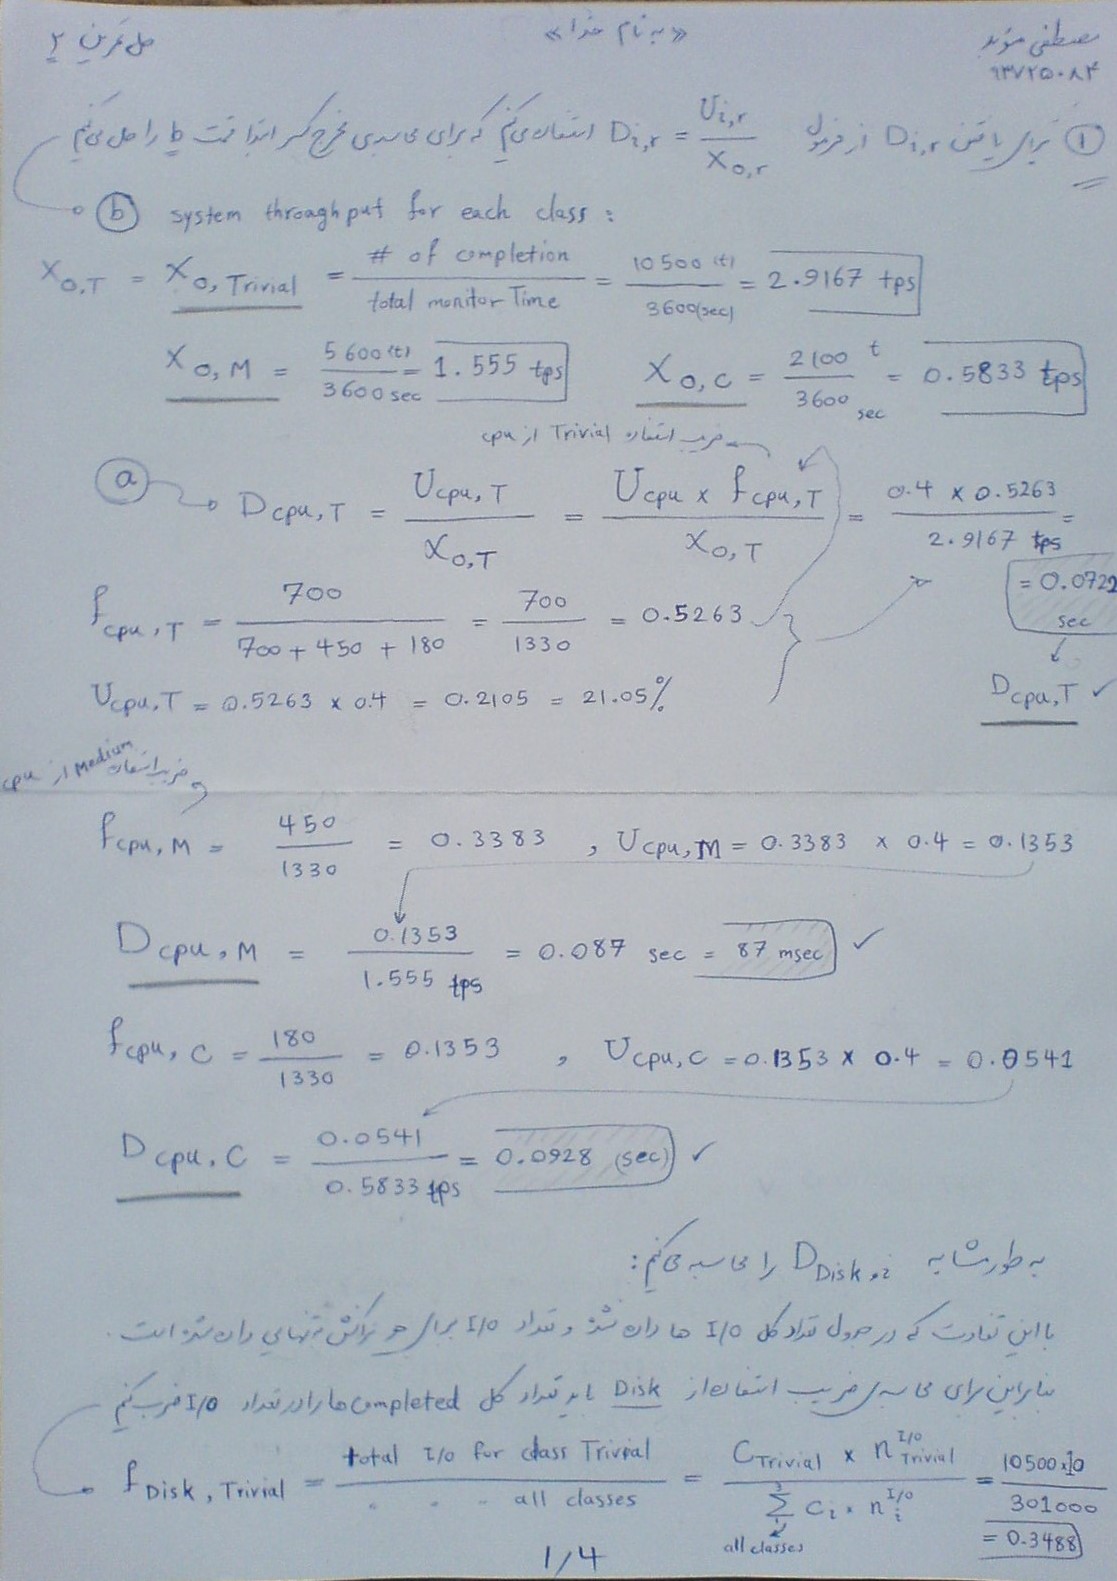 مصطفی مؤید «به نام خدا» حل تمرین ۲
۹۳۷۲۵۰۸۴
① برای یافتن D_{i,r} از فرمول D_{i,r} = U_{i,r} / X_{o,r} استفاده می‌کنیم که برای محاسبه‌ی مخرج کسر ابتدا قسمت b را حل می‌کنیم
ⓑ system throaghput for each class :
X_{o,T} = X_{o,Trivial} = # of completion / total monitor Time = 10500 (t) / 3600(sec) = 2.9167 tps
X_{o,M} = 5600 (t) / 3600 sec = 1.555 tps X_{o,C} = 2100 t / 3600 sec = 0.5833 tps
ضریب استفاده Trivial از cpu
ⓐ D_{cpu,T} = U_{cpu,T} / X_{o,T} = U_{cpu} × f_{cpu,T} / X_{o,T} = 0.4 × 0.5263 / 2.9167 tps =
= 0.0722 sec
f_{cpu,T} = 700 / 700 + 450 + 180 = 700 / 1330 = 0.5263
U_{cpu,T} = 0.5263 × 0.4 = 0.2105 = 21.05% D_{cpu,T} ✓
ضریب استفاده Medium از cpu
f_{cpu,M} = 450 / 1330 = 0.3383 , U_{cpu,M} = 0.3383 × 0.4 = 0.1353
D_{cpu,M} = 0.1353 / 1.555 tps = 0.087 sec = 87 msec ✓
f_{cpu,C} = 180 / 1330 = 0.1353 , U_{cpu,C} = 0.1353 × 0.4 = 0.0541
D_{cpu,C} = 0.0541 / 0.5833 tps = 0.0928 (sec) ✓
به طور مشابه D_{Disk,i} را محاسبه می‌کنیم:
با این تفاوت که در جدول تعداد کل I/O ها داده نشده و تعداد I/O برای هر تراکنش به تنهایی داده شده است.
بنابراین برای محاسبه‌ی ضریب استفاده از Disk باید تعداد کل completed ها را در تعداد I/O ضرب کنیم
f_{Disk,Trivial} = total I/O for class Trivial / " " " all classes = C_{Trivial} × n^{I/O}_{Trivial} / Σ^{3} C_i × n_i^{I/O} = 10500×10 / 301000
= 0.3488
all classes
1/4